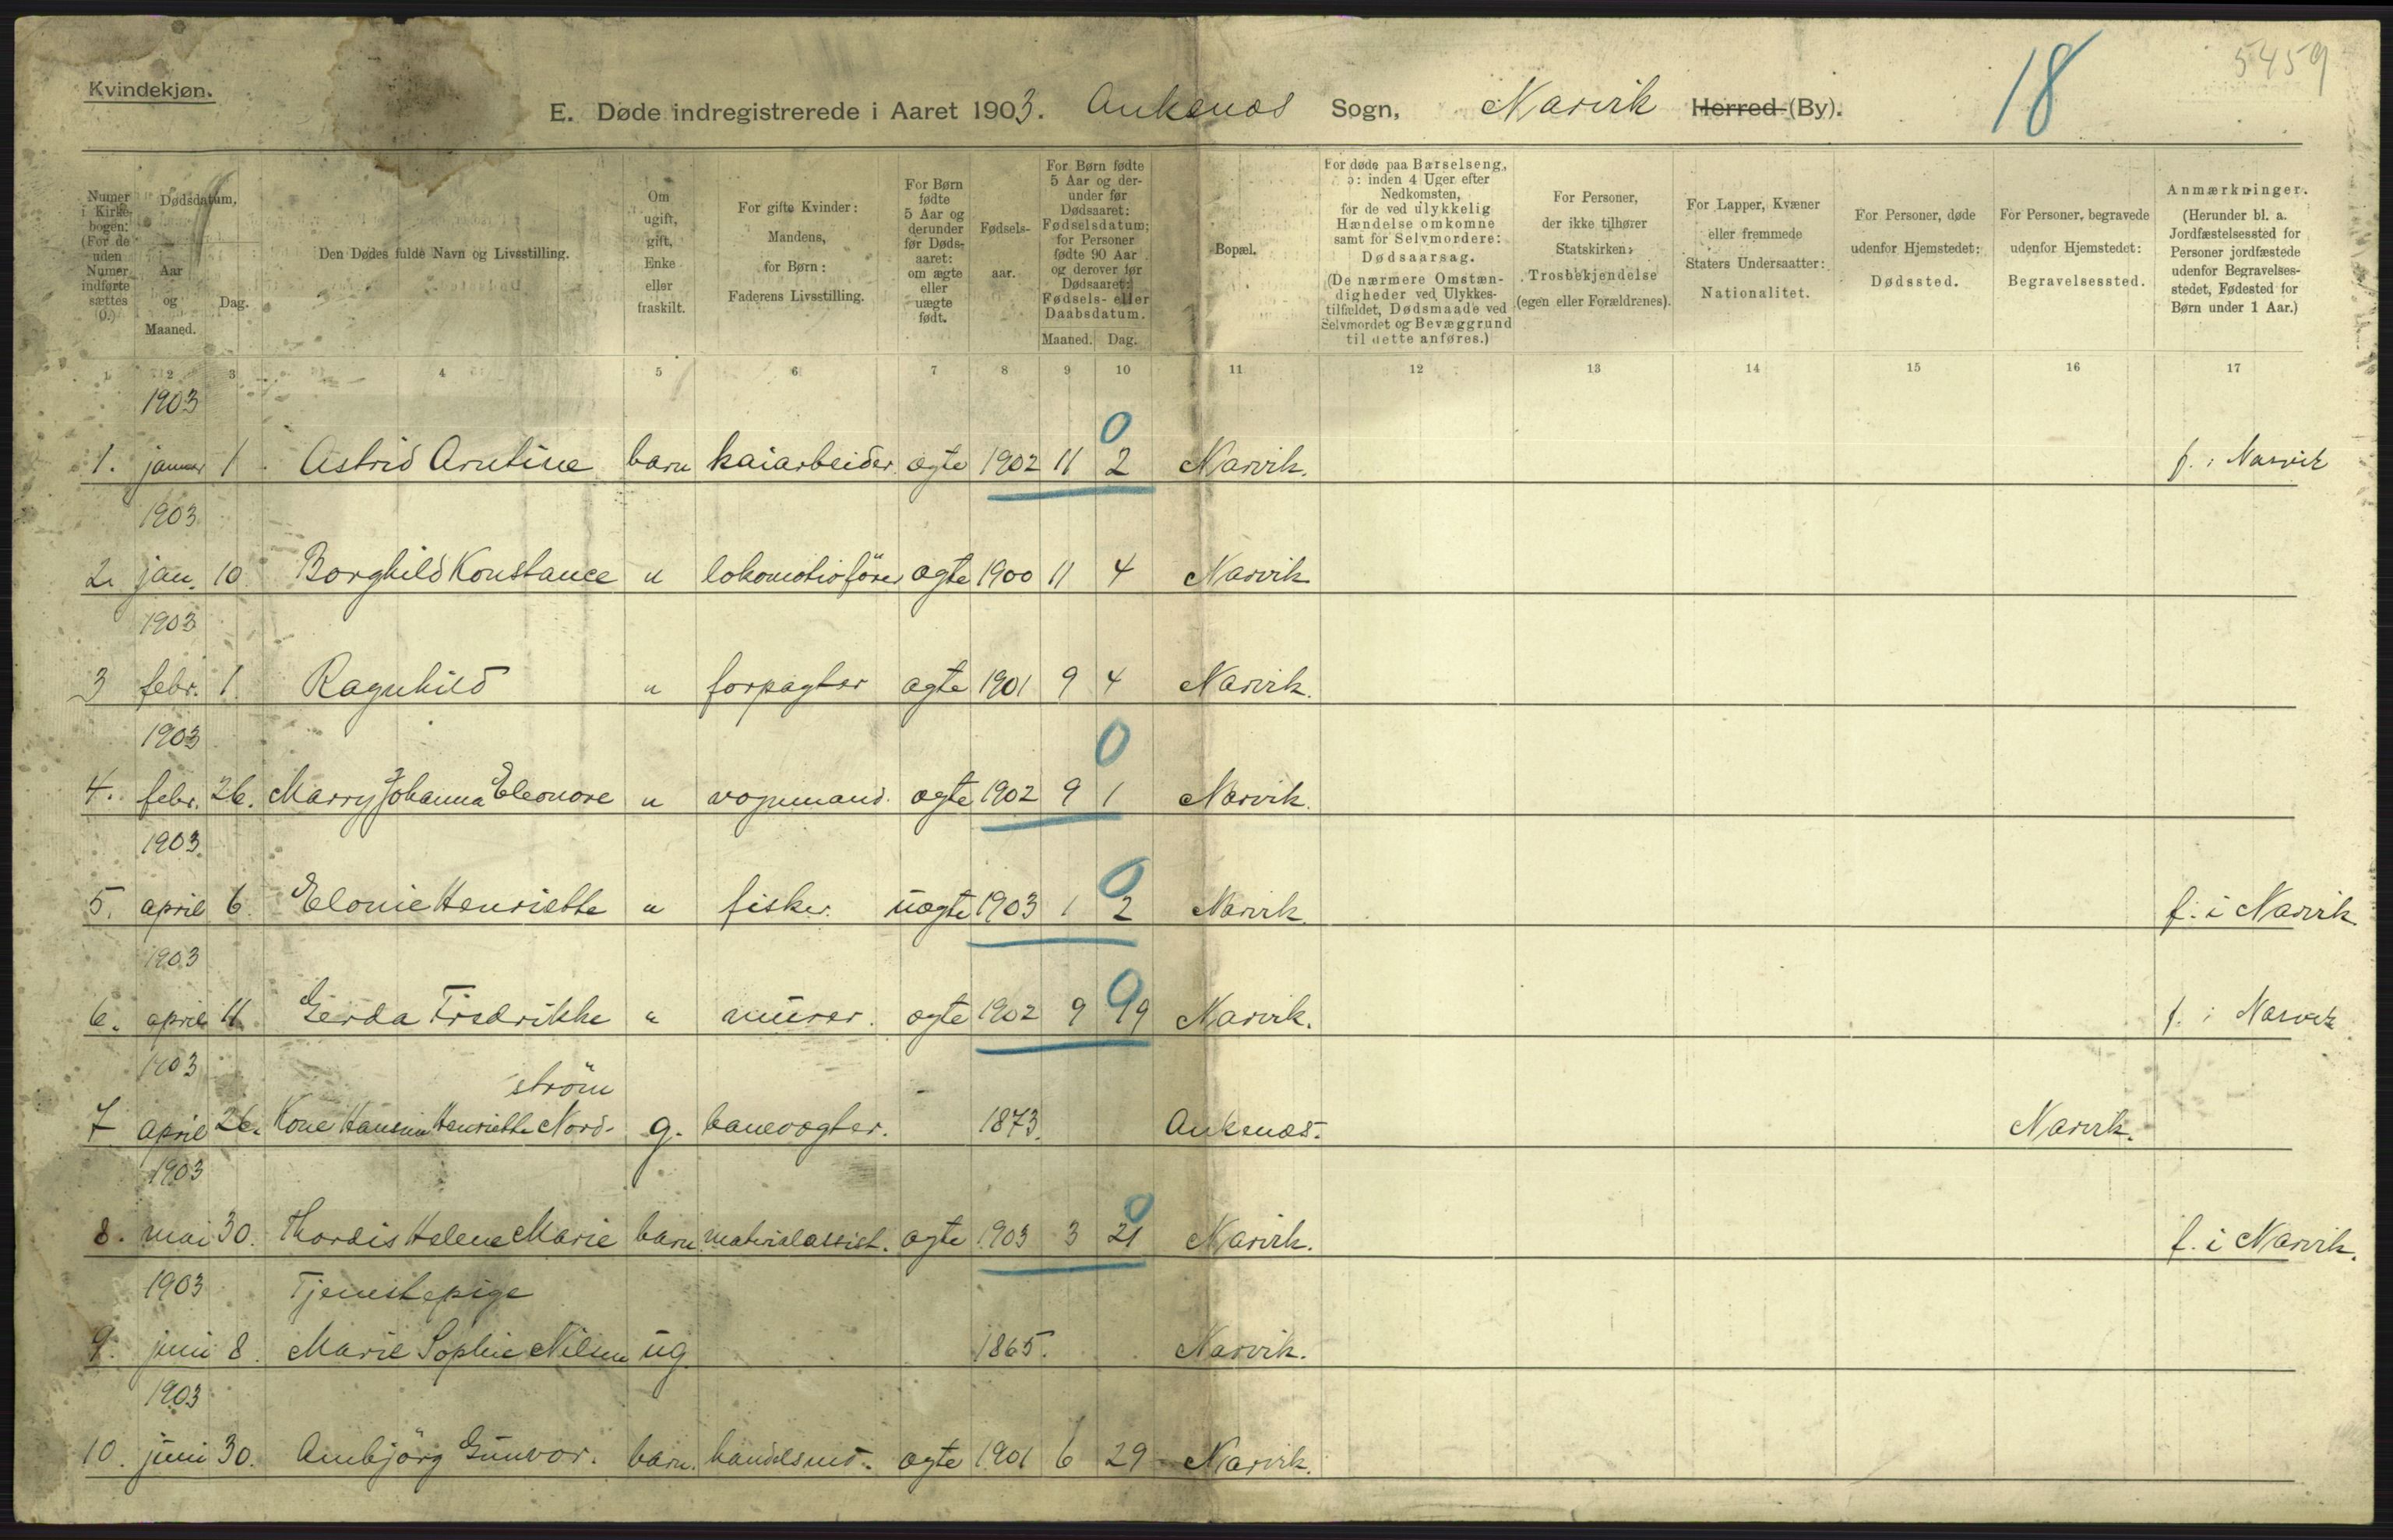 5459
18
Kvindekjøn.
E. Døde indregistrerede i Aaret 1903. Ankenæs Sogn, Narvik Herred (By).
Numer i Kirkebogen: (For de uden Numer indførte sættes 0.)
Dødsdatum.
Aar og Maaned.
Dag.
Den Dødes fulde Navn og Livsstilling.
Om ugift, gift, Enke eller fraskilt.
For gifte Kvinder: Mandens, for Børn: Faderens Livsstilling.
For Børn fødte 5 Aar og derunder før Dødsaaret: om ægte eller uægte født.
Fødsels-aar.
For Børn fødte 5 Aar og derunder før Dødsaaret: Fødselsdatum; for Personer fødte 90 Aar og derover før Dødsaaret: Fødsels- eller Daabsdatum.
Maaned. Dag.
Bopæl.
For døde paa Barselseng, ɔ: inden 4 Uger efter Nedkomsten, for de ved ulykkelig Hændelse omkomne samt for Selvmordere: Dødsaarsag. (De nærmere Omstændigheder ved Ulykkestilfældet, Dødsmaade ved Selvmordet og Bevæggrund til dette anføres.)
For Personer, der ikke tilhører Statskirken: Trosbekjendelse (egen eller Forældrenes).
For Lapper, Kvæner eller fremmede Staters Undersaatter: Nationalitet.
For Personer, døde udenfor Hjemstedet: Dødssted.
For Personer, begravede udenfor Hjemstedet: Begravelsessted.
Anmærkninger. (Herunder bl. a. Jordfæstelsessted for Personer jordfæstede udenfor Begravelsesstedet, Fødested for Børn under 1 Aar.)
1 2 3 4 5 6 7 8 9 10 11 12 13 14 15 16 17
1903
0
1. januar 1. Astrid Arntine barn kaiarbeider ægte 1902 11 2 Narvik. f. i Narvik
1903
2. jan. 10. Borghild Konstance " lokomotivfører ægte 1900 11 4 Narvik
1903
3 febr. 1. Ragnhild " forpagter ægte 1901 9 4 Narvik.
1903
0
4. febr. 26. Marry Johanna Eleonore " vognmand. ægte 1902 9 1 Narvik.
1903
0
5. april 6. Elonie Henriette " fisker. uægte 1903 1 2 Narvik f. i Narvik
1903
0
6. april 11. Gerda Fredrikke " murer. ægte 1902 9 19 Narvik. f. i Narvik
1903
strøm
7 april 26. Kone Hansine Henriette Nord- g. banevogter. 1873. Ankenæs. Narvik.
1903
0
8. mai 30. Thordis Helene Marie barn. materialassist. ægte 1903 3 21 Narvik. f. i Narvik.
1903 Tjenestepige
9. juni 8. Marie Sophie Nilsen ug. 1865. Narvik.
1903
10. juni 30. Ambjörg Gunvor. barn. handelsmd. ægte 1901 6 29 Narvik.